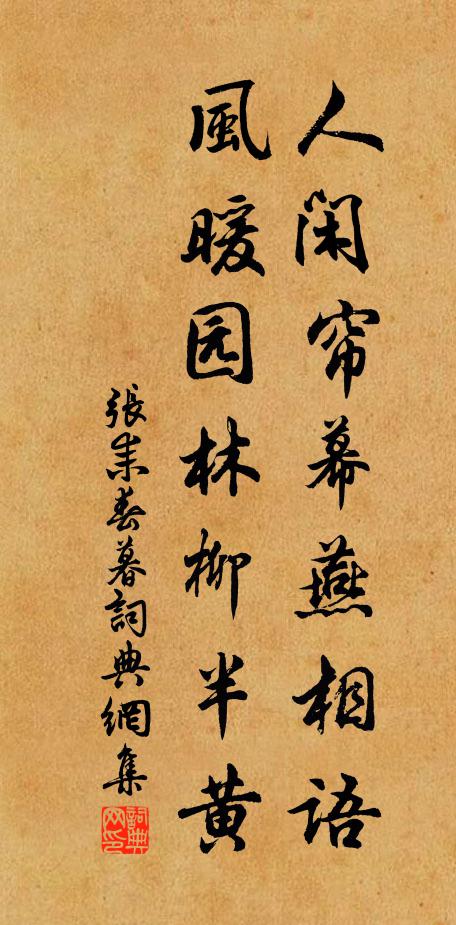 人闲帘幕燕相語
風暖园林柳半黄
張耒春暮詞典網集
詞典网印